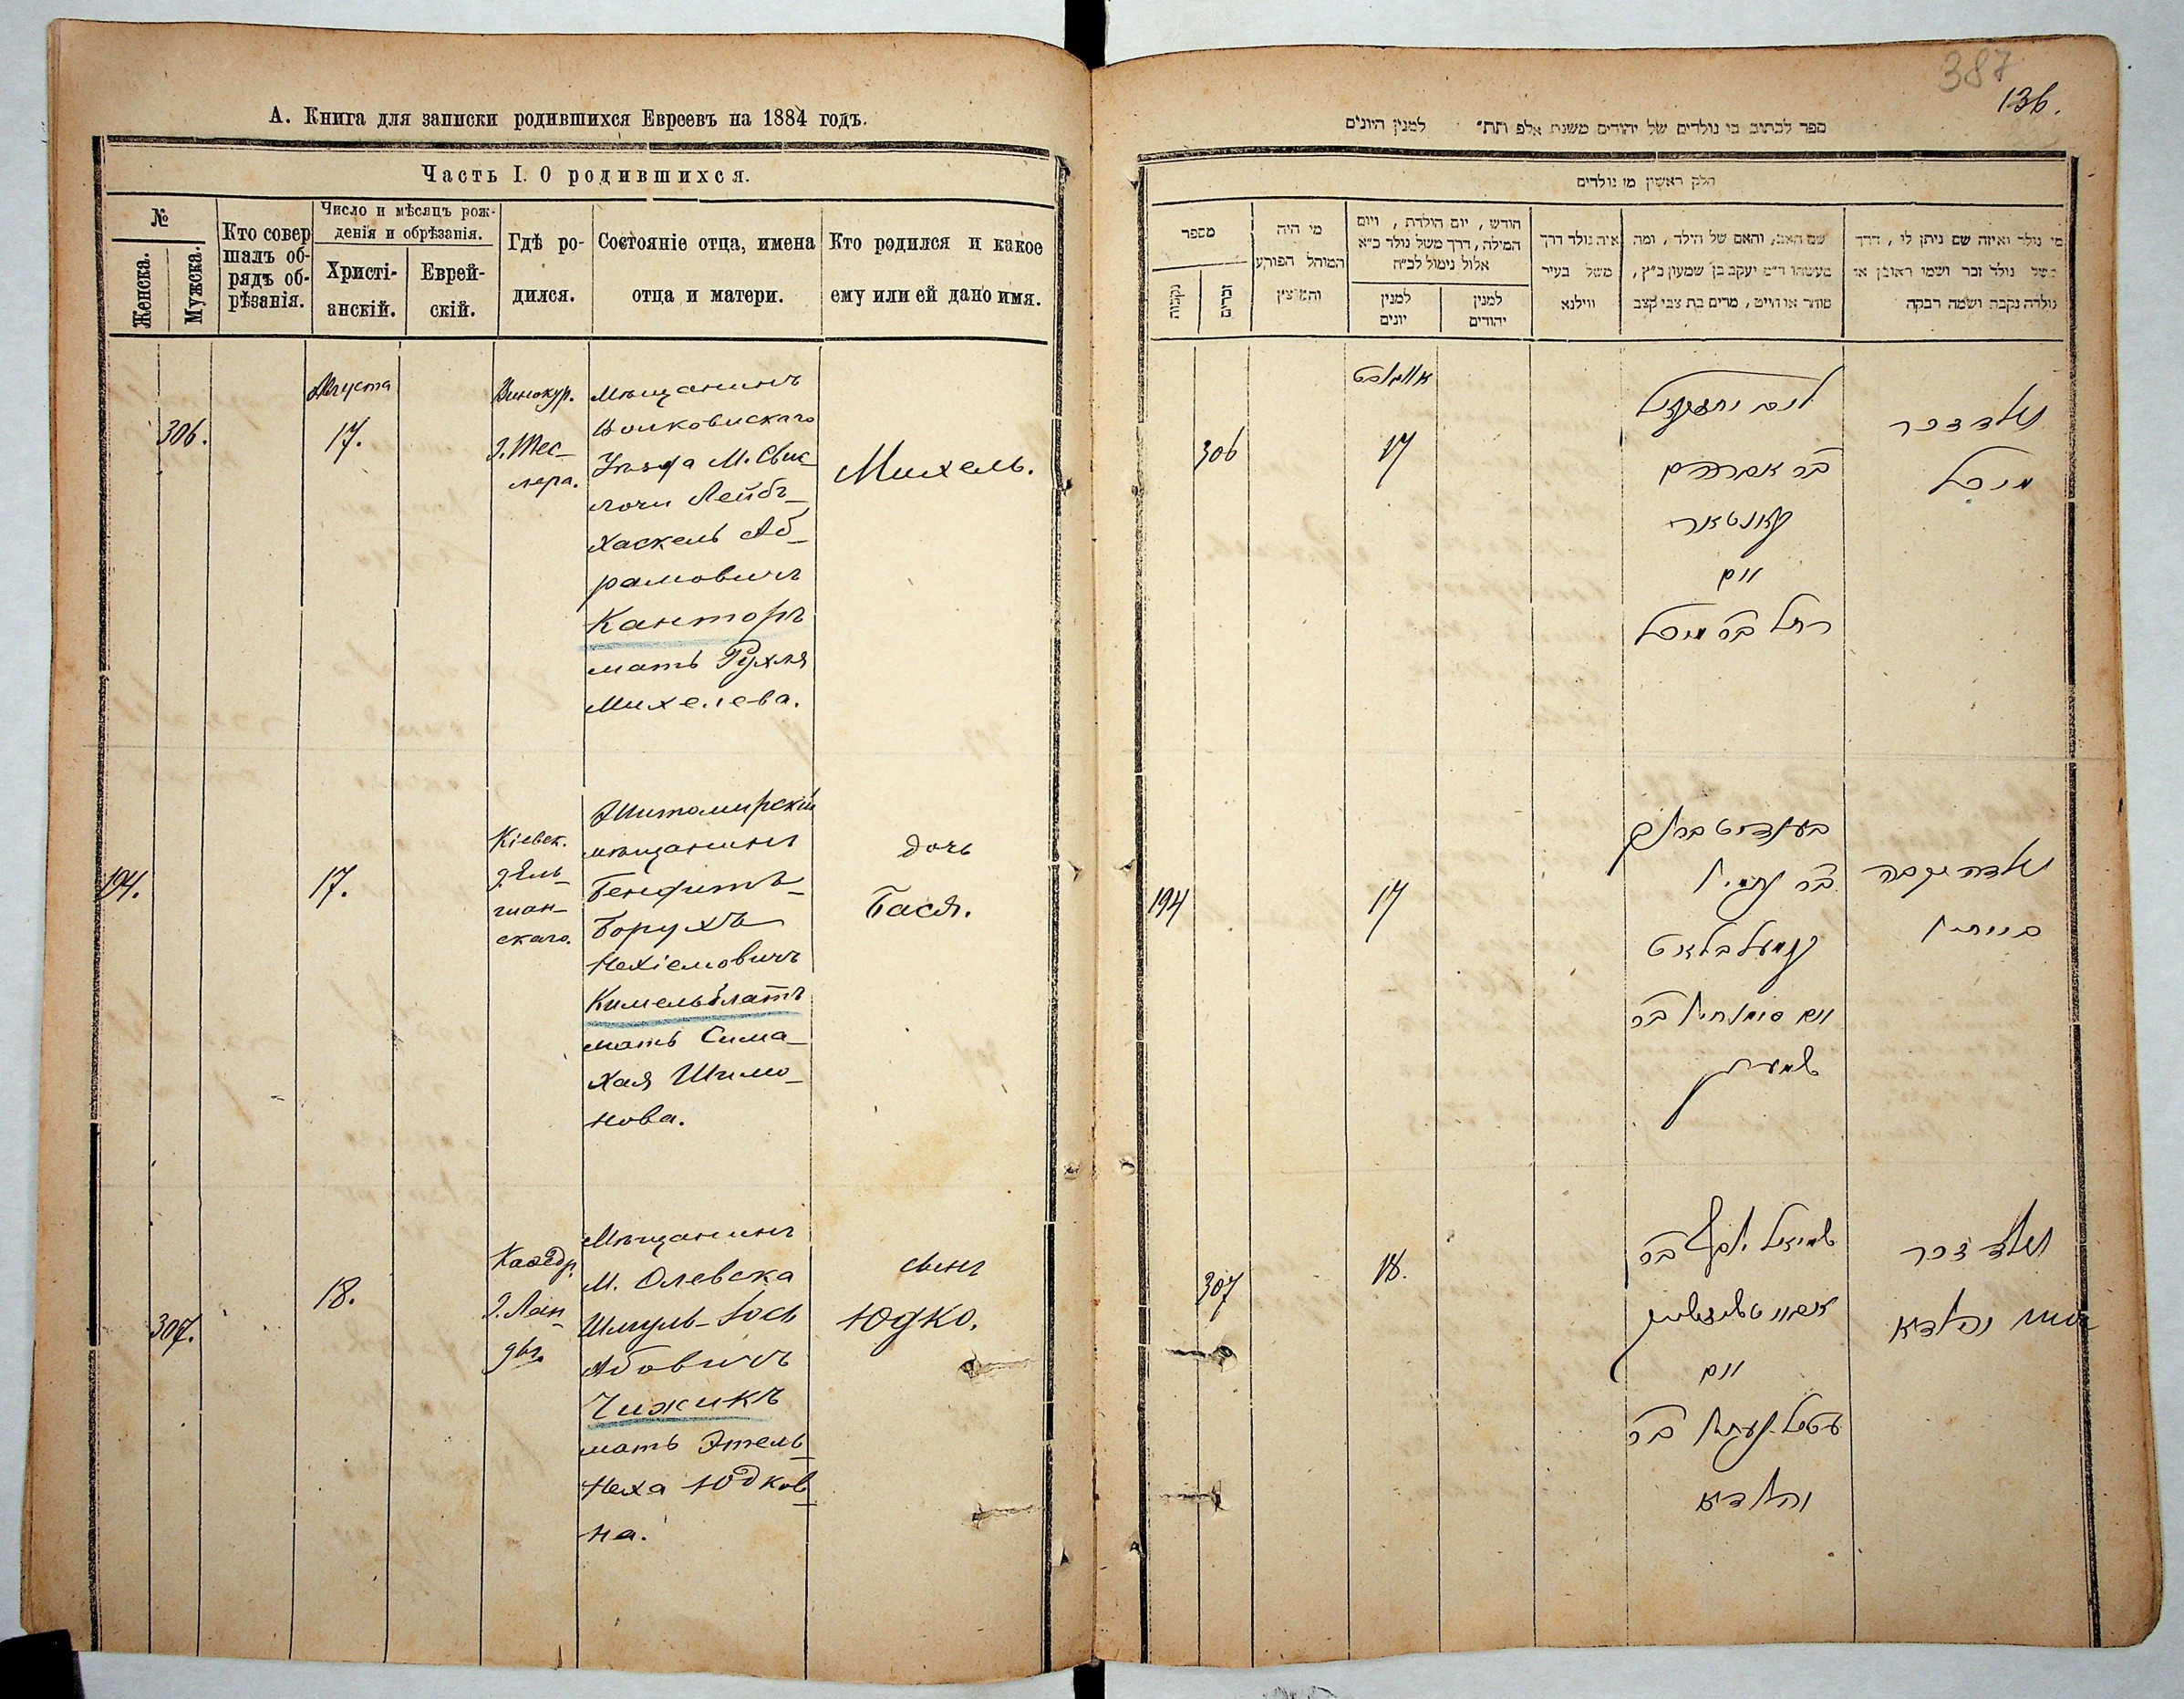 А. Книга для записки родившихся Евреевъ на 1884 годъ.
Часть I. О родившихся.
№
Женска.
Мужска.
Кто совер
шалъ об-
рядъ об-
рѣзанія.
Число и мѣсяцъ рож-
денія и обрѣзанія.
Христі-
анскій.
Еврей-
скій.
Гдѣ ро-
дился.
Состояніе отца, имена
отца и матери.
Кто родился и какое
ему или ей дано имя.
306.
Августа
17.
Винокур.
Мѣщанинъ
Волковискаго
Уѣзда М. Свис-
лочи Лейбъ-
Хаскель Аб-
рамовичъ
Канторъ
мать Рухля
Михелева.
Михель.
194.
17.
Кіевск.
Житомирскій
мѣщанинъ
Бенфитъ-
Борухъ
Нехіемовичъ
Кимельблатъ
мать Сима-
Хая Шимо-
нова.
дочь
Бася.
307.
18.
Мѣщанинъ
М. Олевска
Шмуль-Іось
Абовичъ
Чижикъ
мать Этель-
Неха Юдков-
на.
сынъ
Юдко.
387
136.
ספר לכתוב בו נולדים של יהודים משנת אלפ תת״ למנין היונים
חלק ראשון מן נולדים
מספר
נקבות
זכרים
מי היה
המוהל הפורע
והמוצץ
חודש, יום הולדת, ויום
המילה, דרך משל נולד כ״א
אלול נימול לכ״ח
למנין
יונים
למנין
יהודים
איה נולד דרך
משל בעיר
ווילנא
שם האב, והאם של הילד, ומה
מעשהו ד״מ יעקב בן שמעון כ״ץ,
סוחר או חייט, מרים בת צבי קצב
מי נולד ואיזה שם ניתן לו, דרך
משל נולד זכר ושמו ראובן או
נולדה נקבה ושמה רבקה
306
אווגוסט
17
ליב יחזקאל
בר אברהם
קאנטאר
ואם
רחל בר מיכל
נולד זכר
מיכל
194
17
קימעלבלאט
נולדה נקבה
307
18.
ואם
נולד זכר